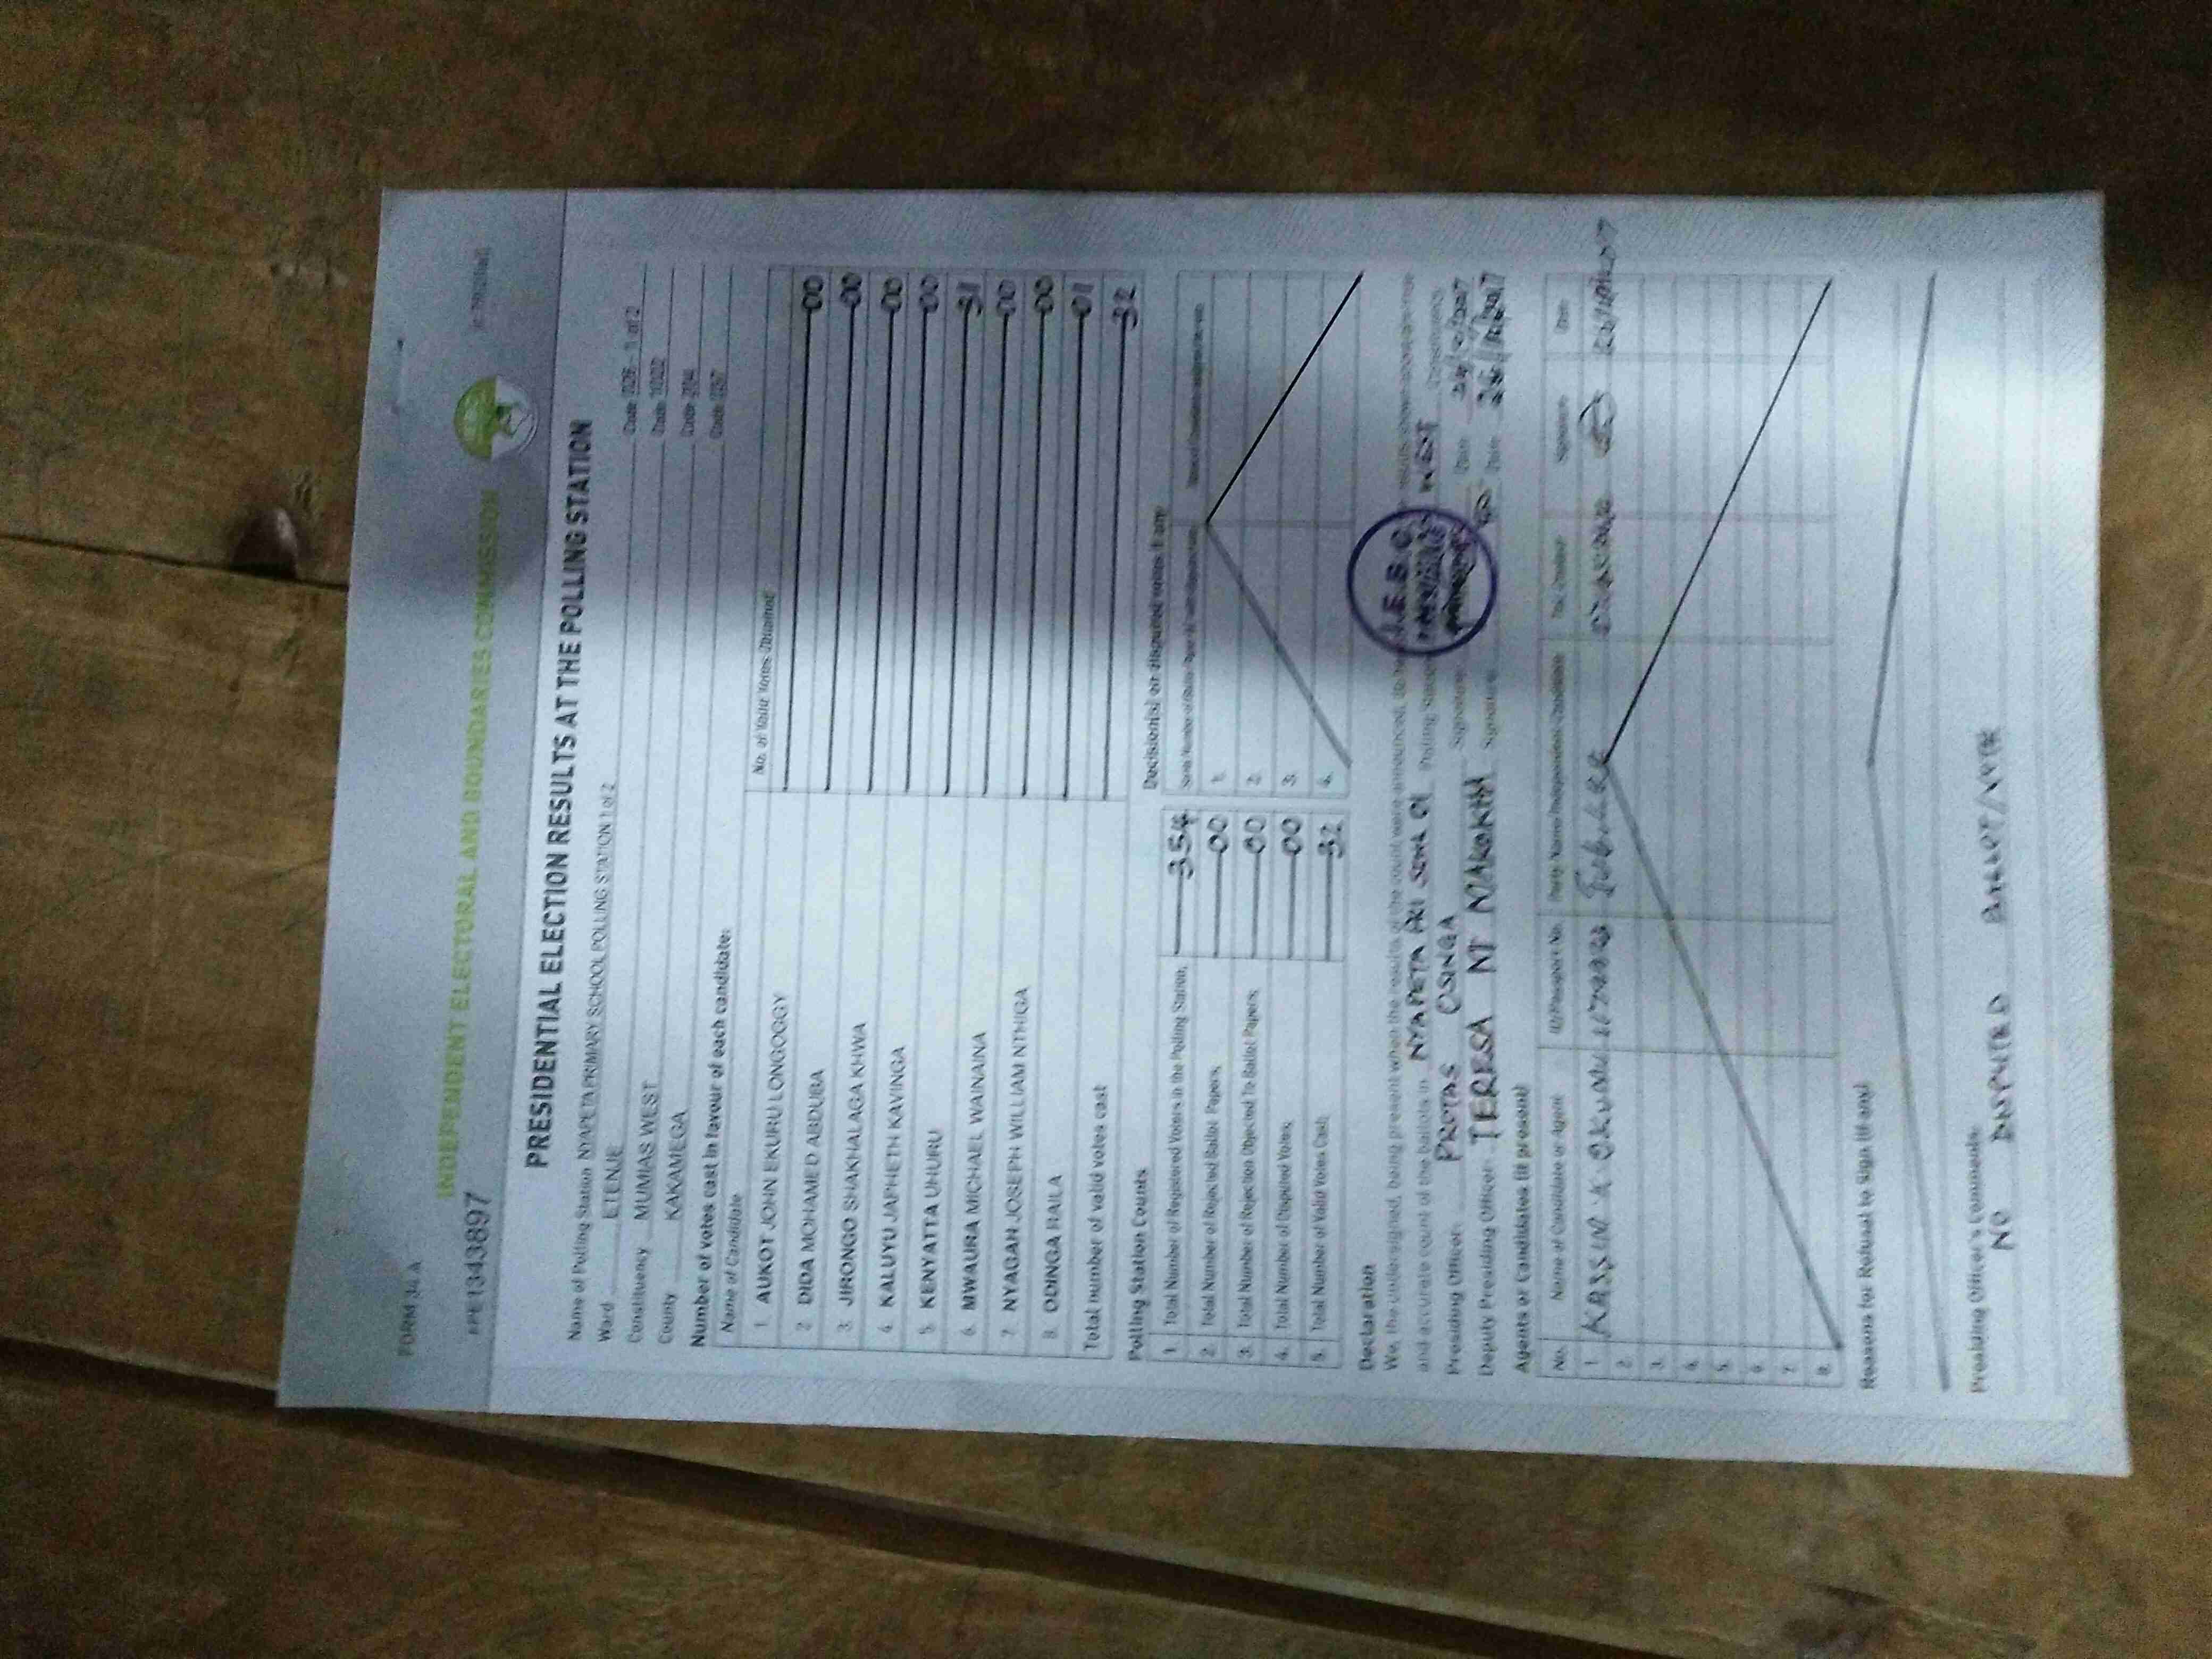 FORM 34 A
INDEPENDENT ELECTORAL AND BOUNDARIES COMMISSION
PRESIDENTIAL ELECTION RESULTS AT THE POLLING STATION
Name of Polling Station NYAPETA PRIMARY SCHOOL POLLING STATION 1 of 2 Code 026 - 1 of 2
Ward ETENJE Code 1022
Constituency MUMIAS WEST Code 204
County KAKAMEGA Code 037
Number of votes cast in favour of each candidate:
Name of Candidate No. of Valid Votes Obtained
1. AUKOT JOHN EKURU LONGOGGY 00
2. DIDA MOHAMED ABDUBA 00
3. JIRONGO SHAKHALAGA KHWA 00
4. KALUYU JAPHETH KAVINGA 00
5. KENYATTA UHURU 31
6. MWAURA MICHAEL WAINAINA 00
7. NYAGAH JOSEPH WILLIAM NTHIGA 00
8. ODINGA RAILA 01
Total number of valid votes cast 32
Polling Station Counts
1. Total Number of Registered Voters in the Polling Station; 354
2. Total Number of Rejected Ballot Papers; 00
3. Total Number of Rejection Objected To Ballot Papers; 00
4. Total Number of Disputed Votes; 00
5. Total Number of Valid Votes Cast; 32
Decision(s) on disputed votes if any
1.
2.
3.
4.
Declaration
We, the undersigned, being present when the results of the count were announced,
and accurate count of the ballots in NYAPETA PRI SCHL 01 Polling WEST Constituency;
Presiding Officer: PROTAS OSINGA Signature Date
Deputy Presiding Officer: TERESA N MAKOKHA Signature Date
Agents or Candidates (if present)
No. Name of Candidate or Agent ID/Passport No. Party Name/Independent Candidate Tel. Contact Signature Date
1. Jubilee
2.
3.
4.
5.
6.
7.
8.
Reasons for Refusal to Sign (if any)
Presiding Officer's Comments:
NO